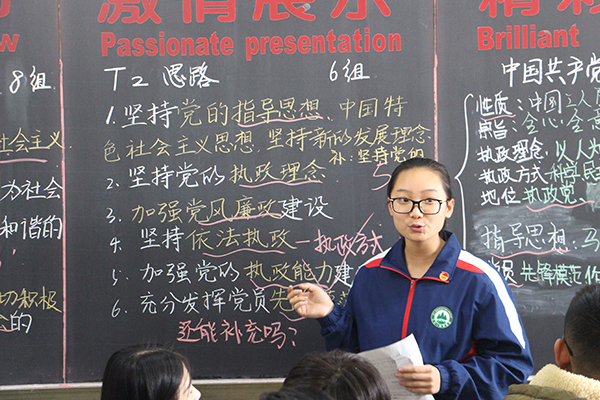 激情展示
Passionate presentation
精彩
Brilliant
8组
T2 思路
6组
1. 坚持党的指导思想、中国特
色社会主义思想、坚持新的发展理念
2. 坚持党的执政理念
补:坚持党的
3. 加强党风廉政建设
4. 坚持依法执政—执政方式
5. 加强党的执政能力建
6. 充分发挥党员先
还能补充吗?
5
社会主义
为社会
和谐的
切积极
的
中国共产
性质:中国工人
宗旨:全心全意
执政理念:以人为
执政方式:科学民
地位:执政党.
指导思想:马
员:先锋模范作